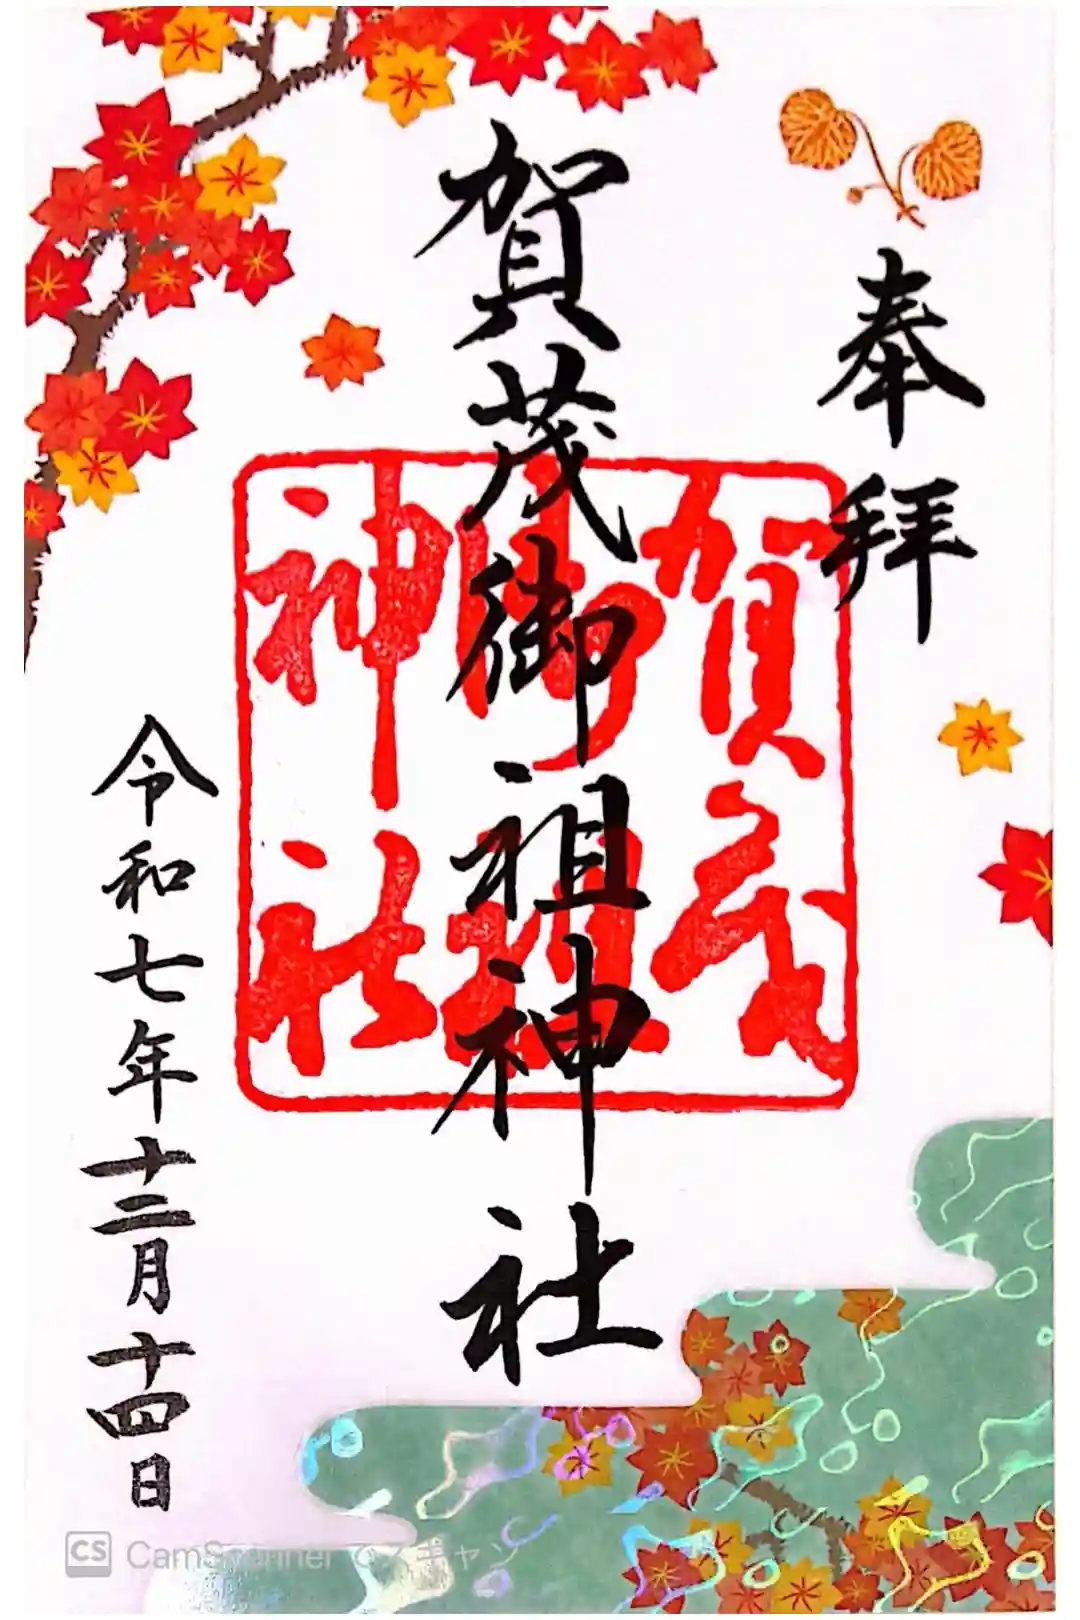 奉拝
賀茂御祖神社
賀茂
御祖
神社
令和七年十二月十四日
CS CamScanner でスキャン